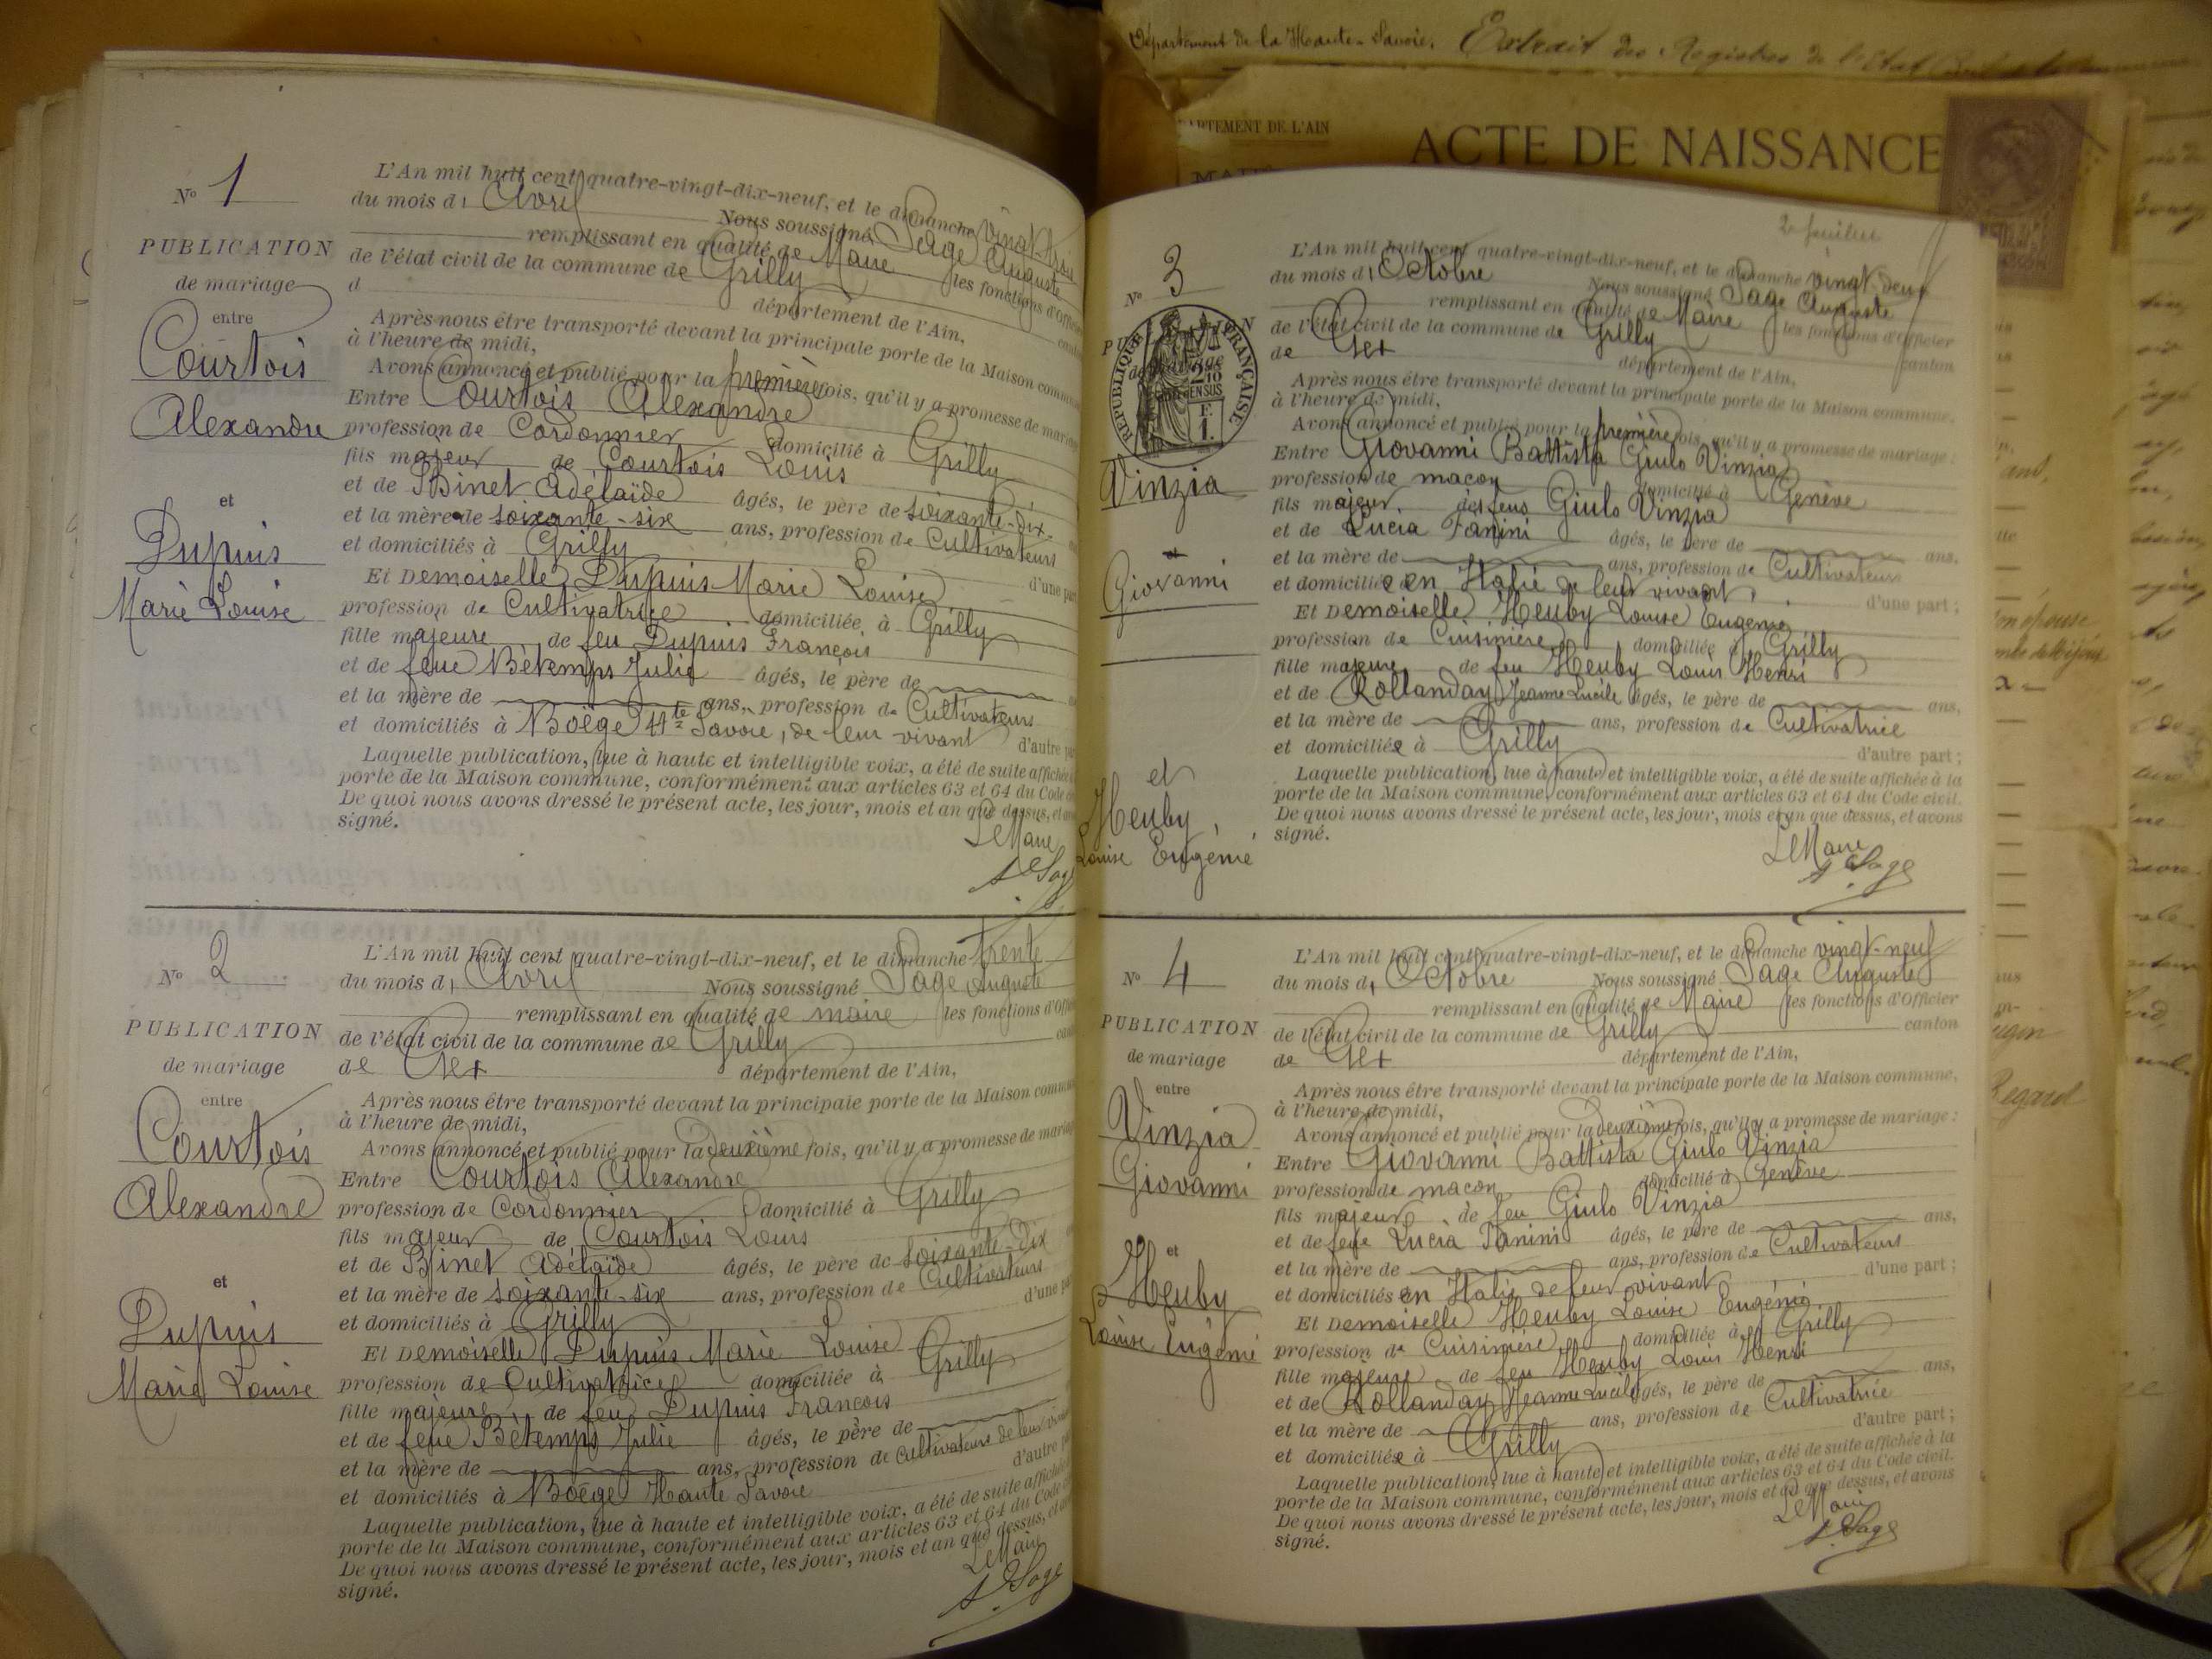 Département de la Haute-Savoie. Extrait des Registres de l'Etat
DÉPARTEMENT DE L'AIN
ACTE DE NAISSANCE
N° 1
PUBLICATION
de mariage
entre
Courtois
Alexandre
et
Dupuis
Marie Louise
L'An mil huit cent quatre-vingt-dix-neuf, et le dimanche vingt-trois
du mois d Avril Nous soussigné Sage Auguste
remplissant en qualité de Maire les fonctions d'Officier
de l'état civil de la commune de Grilly
d département de l'Ain,
Après nous être transporté devant la principale porte de la Maison
à l'heure de midi,
Avons annoncé et publié pour la première fois, qu'il y a promesse de
Entre Courtois Alexandre
profession de Cordonnier domicilié à Grilly
fils majeur de Courtois Louis
et de Binet Adélaïde âgés, le père de soixante-dix
et la mère de soixante-six ans, profession de Cultivateurs
et domiciliés à Grilly
Et Demoiselle Dupuis Marie Louise d'une part
profession de Cultivatrice domiciliée à Grilly
fille majeure de feu Dupuis François
et de feue Bètemps Julie âgés, le père de
et la mère de ans, profession de Cultivateurs
et domiciliés à Boëge Hte Savoie, de leur vivant d'autre
Laquelle publication, lue à haute et intelligible voix, a été de suite affichée
porte de la Maison commune, conformément aux articles 63 et 64 du Code
De quoi nous avons dressé le présent acte, les jour, mois et an que dessus, et
signé.
Le Maire
A Sage
N° 2
PUBLICATION
de mariage
entre
Courtois
Alexandre
et
Dupuis
Marie Louise
L'An mil huit cent quatre-vingt-dix-neuf, et le dimanche trente
du mois d Avril Nous soussigné Sage Auguste
remplissant en qualité de maire les fonctions
de l'état civil de la commune de Grilly
de Gex département de l'Ain,
Après nous être transporté devant la principale porte de la Maison
à l'heure de midi,
Avons annoncé et publié pour la Deuxième fois, qu'il y a promesse de
Entre Courtois Alexandre
profession de Cordonnier domicilié à Grilly
fils majeur de Courtois Louis
et de Binet Adélaïde âgés, le père de soixante-dix
et la mère de soixante-six ans, profession de Cultivateurs
et domiciliés à Grilly d'une
Et Demoiselle Dupuis Marie Louise
profession de Cultivatrice domiciliée à Grilly
fille majeure de feu Dupuis François
et de feue Bètemps Julie âgés, le père de
et la mère de ans, profession de Cultivateurs de leur
et domiciliés à Boëge Haute Savoie d'autre
Laquelle publication, lue à haute et intelligible voix, a été de suite affichée
porte de la Maison commune, conformément aux articles 63 et 64 du Code
De quoi nous avons dressé le présent acte, les jour, mois et an que dessus, et
signé.
Le Maire
A Sage
2e feuillet
N° 3
RÉPUBLIQUE FRANÇAISE
Vinzia
et
Giovanni
et
Heuby
Louise Eugénie
L'An mil huit cent quatre-vingt-dix-neuf, et le dimanche vingt-deux
du mois d Octobre Nous soussigné Sage Auguste
remplissant en qualité de Maire les fonctions d'Officier
de l'état civil de la commune de Grilly canton
de Gex département de l'Ain,
Après nous être transporté devant la principale porte de la Maison commune,
à l'heure de midi,
Avons annoncé et publié pour la première fois, qu'il y a promesse de mariage :
Entre Giovanni Battista Giulo Vinzia
profession de maçon domicilié à Genève
fils majeur des feus Giulo Vinzia
et de Lucia Fanini âgés, le père de ans,
et la mère de ans, profession de Cultivateurs
et domiciliés en Italie de leur vivant d'une part ;
Et Demoiselle Heuby Louise Eugénie
profession de Cuisinière domiciliée à Grilly
fille majeure de feu Heuby Louis Henri
et de Rollanday Jeanne Lucile âgés, le père de ans,
et la mère de ans, profession de Cultivatrice
et domiciliée à Grilly d'autre part ;
Laquelle publication, lue à haute et intelligible voix, a été de suite affichée à la
porte de la Maison commune, conformément aux articles 63 et 64 du Code civil.
De quoi nous avons dressé le présent acte, les jour, mois et an que dessus, et avons
signé.
Le Maire
A Sage
N° 4
PUBLICATION
de mariage
entre
Vinzia
Giovanni
et
Heuby
Louise Eugénie
L'An mil huit cent quatre-vingt-dix-neuf, et le dimanche vingt-neuf
du mois d Octobre Nous soussigné Sage Auguste
remplissant en qualité de Maire les fonctions d'Officier
de l'état civil de la commune de Grilly canton
de Gex département de l'Ain,
Après nous être transporté devant la principale porte de la Maison commune,
à l'heure de midi,
Avons annoncé et publié pour la deuxième fois, qu'il y a promesse de mariage :
Entre Giovanni Battista Giulo Vinzia
profession de maçon domicilié à Genève
fils majeur de feu Giulo Vinzia
et de feue Lucia Fanini âgés, le père de ans,
et la mère de ans, profession de Cultivateurs
et domiciliés en Italie de leur vivant d'une part ;
Et Demoiselle Heuby Louise Eugénie
profession de Cuisinière domiciliée à Grilly
fille majeure de feu Heuby Louis Henri
et de Rollanday Jeanne Lucile âgés, le père de ans,
et la mère de ans, profession de Cultivatrice
et domiciliée à Grilly d'autre part ;
Laquelle publication, lue à haute et intelligible voix, a été de suite affichée à la
porte de la Maison commune, conformément aux articles 63 et 64 du Code civil.
De quoi nous avons dressé le présent acte, les jour, mois et an que dessus, et avons
signé.
Le Maire
A Sage
Regard